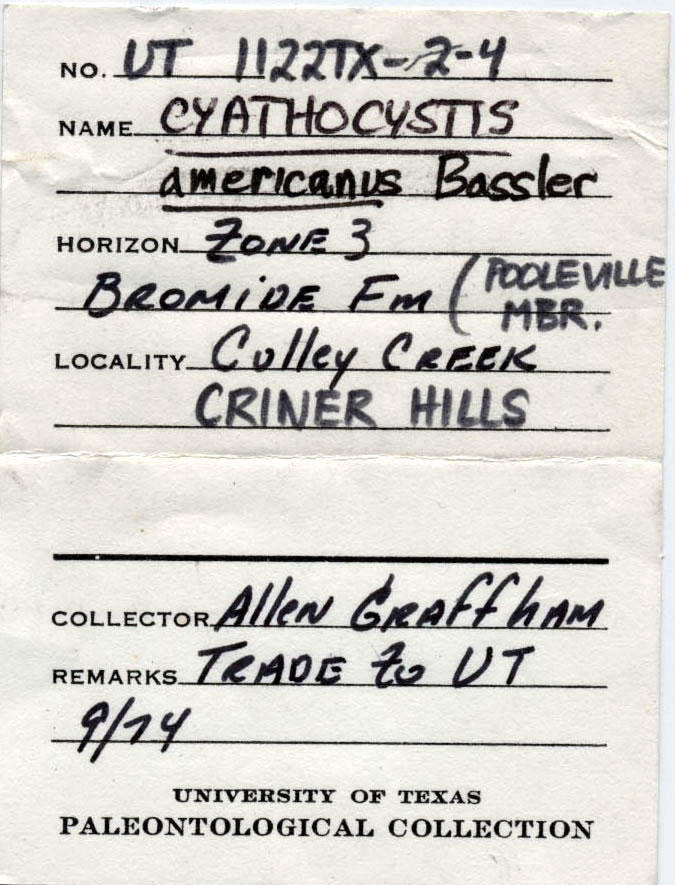 NO. UT 1122TX-2-4
NAME CYATHOCYSTIS
americanus Bassler
HORIZON ZONE 3
BROMIDE Fm (POOLEVILLE
MBR.
LOCALITY Culley CREEK
CRINER HILLS
COLLECTOR Allen GRAffhAM
REMARKS TRADE to UT
9/74
UNIVERSITY OF TEXAS
PALEONTOLOGICAL COLLECTION